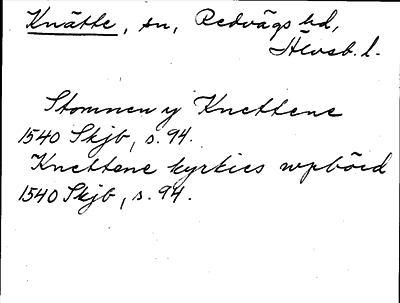 Knätte, sn, Redvägs hd,
Älvsb. l.
Stommen y Knettene
1540 Skjb, s. 94.
Knettene kyrkies wpbörd
1540 Skjb, s. 94.